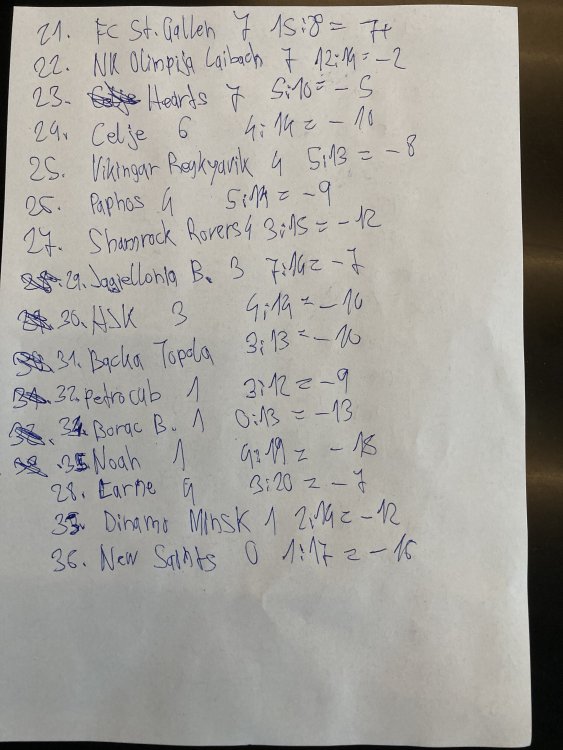 21. FC St. Gallen 7 15:8 = 7+
22. NK Olimpija Laibach 7 12:14 = -2
23. Hearts 7 5:10 = -5
24. Celje 6 4:14 = -10
25. Vikingar Reykyavik 4 5:13 = -8
26. Paphos 4 5:14 = -9
27. Shamrock Rovers 4 3:15 = -12
29. Jagiellonia B. 3 7:14 = -7
30. HSK 3 4:14 = -10
31. Backa Topola 3:13 = -10
32. Petrocub 1 3:12 = -9
34. Borac B. 1 0:13 = -13
35. Noah 1 4:19 = -18
28. Larne 4 3:20 = -7
33. Dinamo Minsk 1 2:14 = -12
36. New Saints 0 1:17 = -16